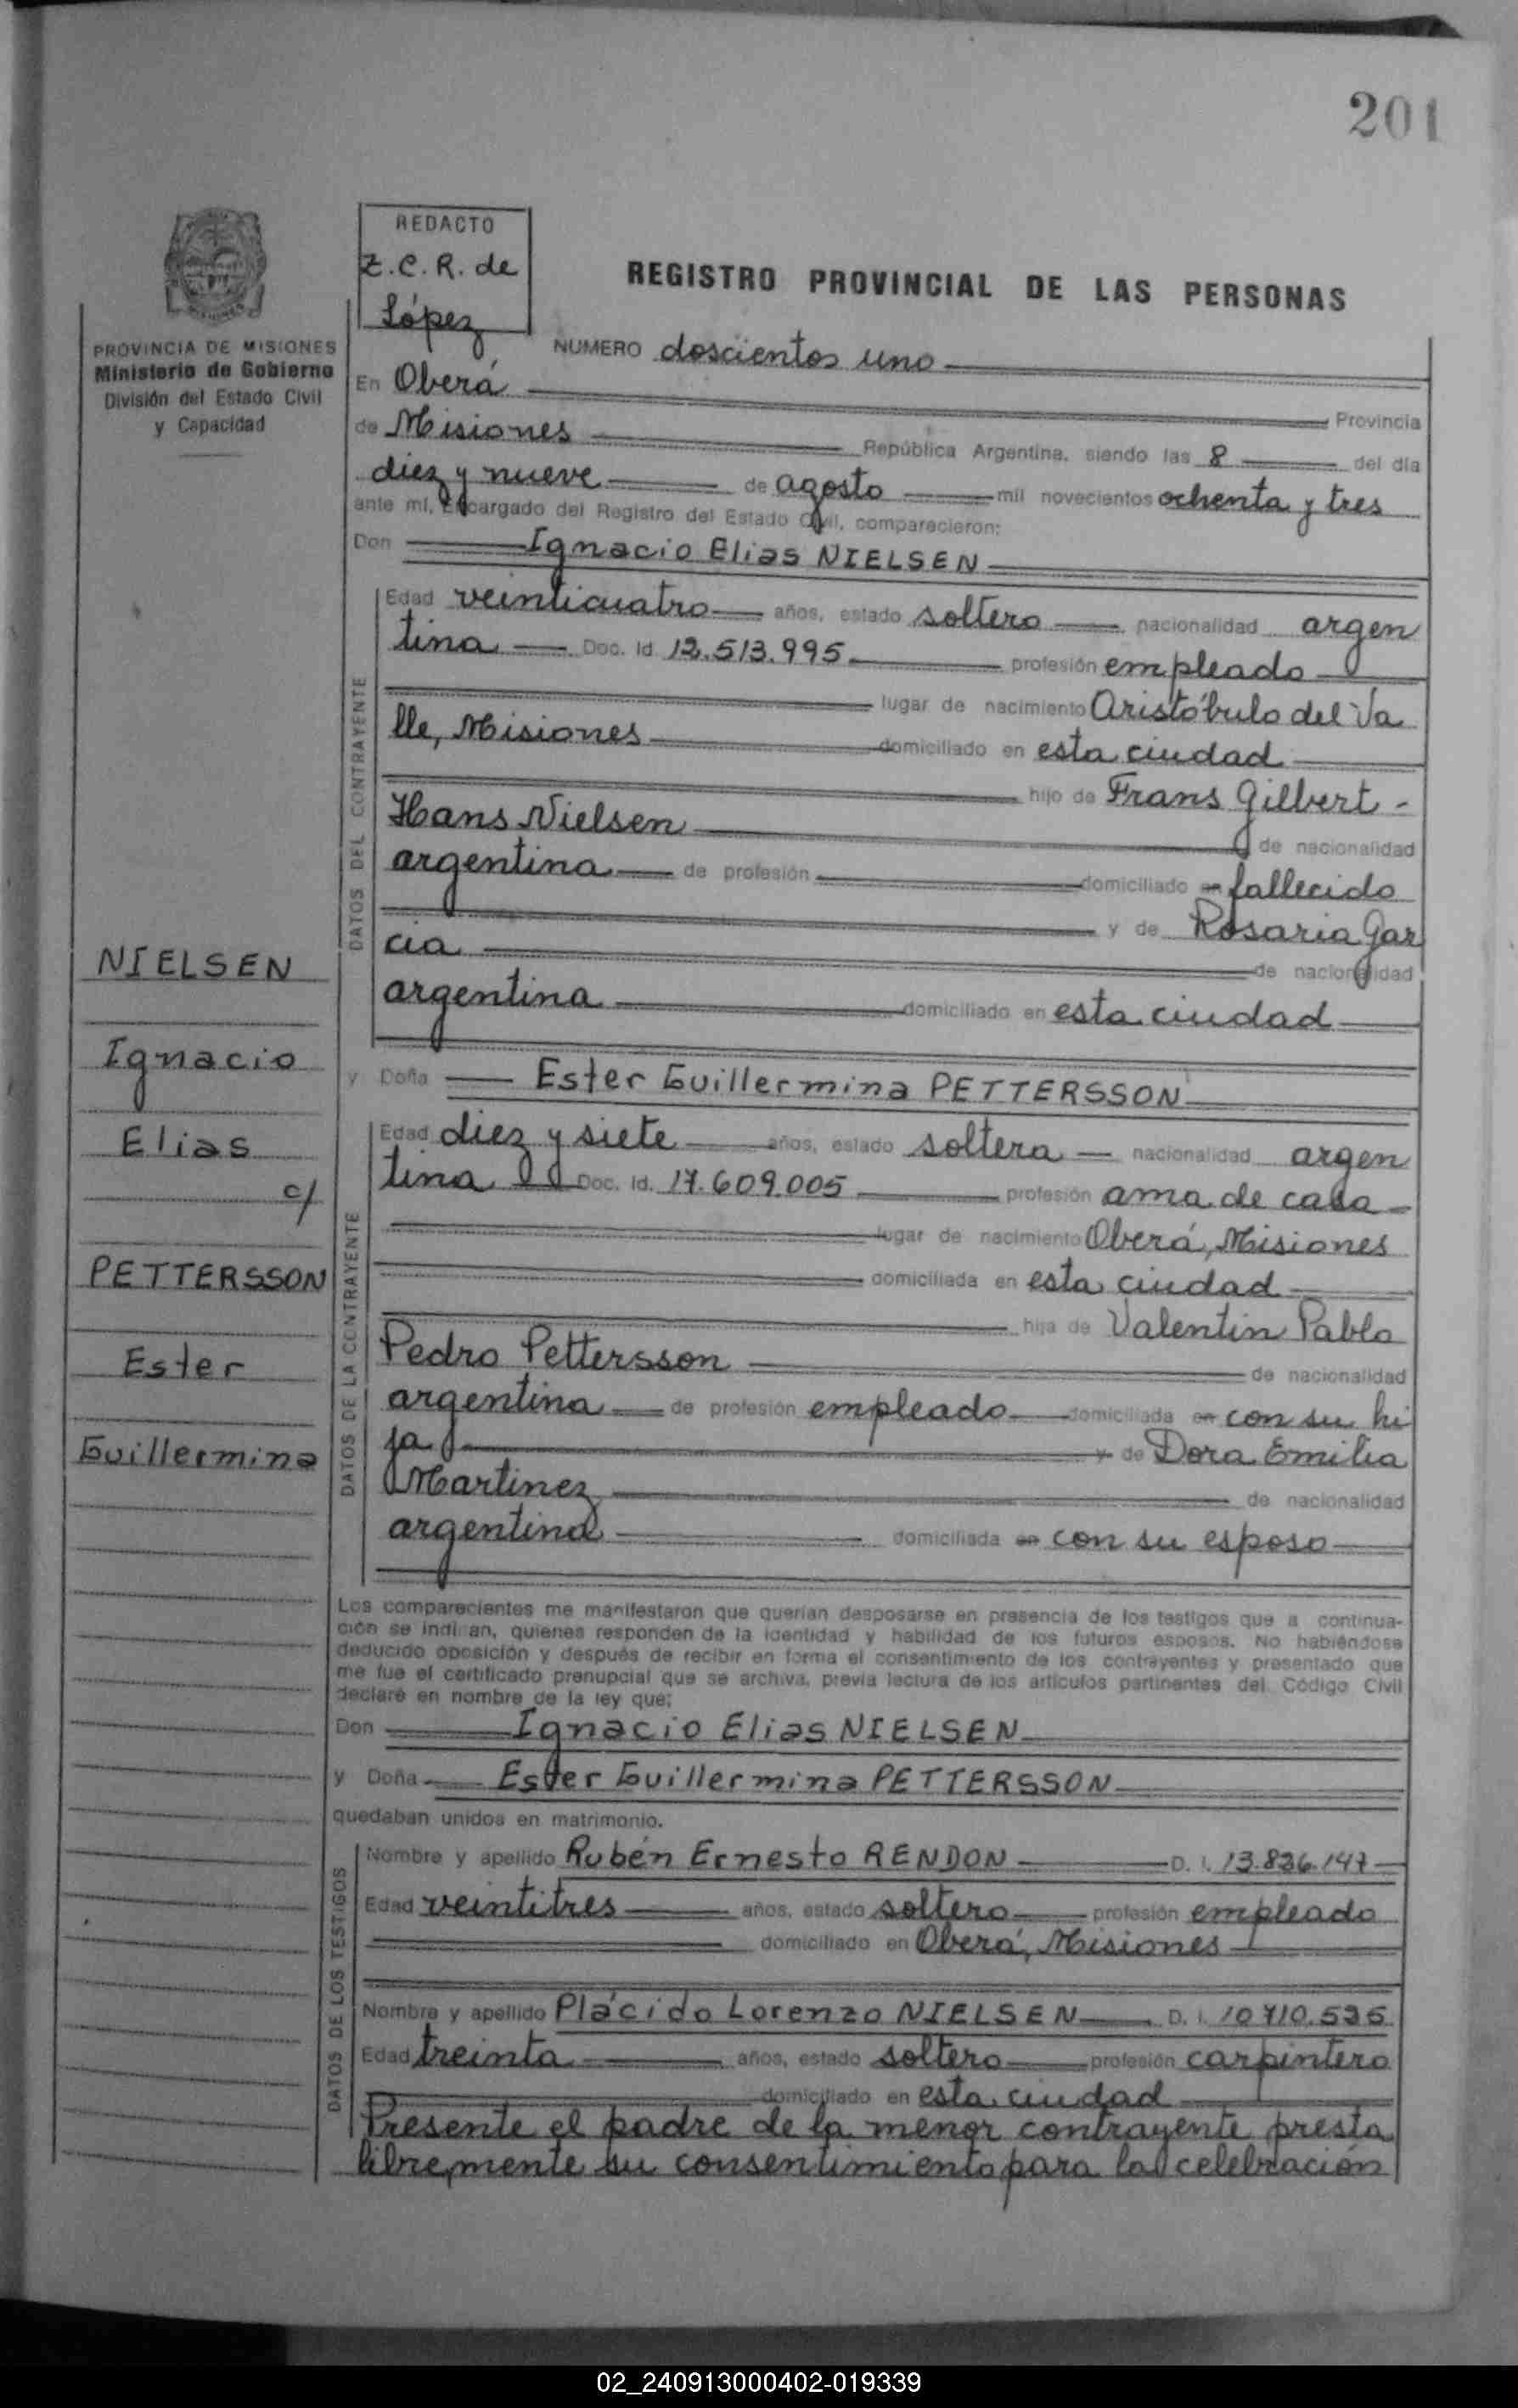 201
REDACTO
Z.C.R. de
López
REGISTRO PROVINCIAL DE LAS PERSONAS
PROVINCIA DE MISIONES
Ministerio de Gobierno
División del Estado Civil
y Capacidad
NUMERO doscientos uno
En Oberá Provincia
de Misiones República Argentina, siendo las 8 del día
diez y nueve de agosto mil novecientos ochenta y tres
ante mí, Encargado del Registro del Estado Civil, comparecieron:
Don Ignacio Elias NIELSEN
DATOS DEL CONTRAYENTE
Edad veinticuatro años, estado soltero nacionalidad argen
tina Doc. Id. 12.513.995 profesión empleado
lugar de nacimiento Aristóbulo del Va
lle, Misiones domiciliado en esta ciudad
hijo de Frans Gilbert -
Hans Nielsen de nacionalidad
argentina de profesión domiciliado en fallecido
y de Rosaria Gar
cia de nacionalidad
argentina domiciliado en esta ciudad
y Doña Ester Guillermina PETTERSSON
DATOS DE LA CONTRAYENTE
Edad diez y siete años, estado soltera nacionalidad argen
tina Doc. Id. 17.609.005 profesión ama de casa
lugar de nacimiento Oberá, Misiones
domiciliada en esta ciudad
hija de Valentin Pablo
Pedro Pettersson de nacionalidad
argentina de profesión empleado domiciliada en con su hi
ja y de Dora Emilia
Martinez de nacionalidad
argentina domiciliada en con su esposo
NIELSEN
Ignacio
Elias
c/
PETTERSSON
Ester
Guillermina
Los comparecientes me manifestaron que querían desposarse en presencia de los testigos que a continua-
ción se indican, quienes responden de la identidad y habilidad de los futuros esposos. No habiéndose
deducido oposición y después de recibir en forma el consentimiento de los contrayentes y presentado que
me fue el certificado prenupcial que se archiva, previa lectura de los artículos pertinentes del Código Civil
declaré en nombre de la ley que:
Don Ignacio Elias NIELSEN
y Doña Ester Guillermina PETTERSSON
quedaban unidos en matrimonio.
DATOS DE LOS TESTIGOS
Nombre y apellido Rubén Ernesto RENDON D. I. 13.836.147
Edad veintitres años, estado soltero profesión empleado
domiciliado en Oberá, Misiones
Nombre y apellido Plácido Lorenzo NIELSEN D. I. 10.710.535
Edad treinta años, estado soltero profesión carpintero
domiciliado en esta ciudad
Presente el padre de la menor contrayente presta
libremente su consentimiento para la celebración
02_240913000402-019339